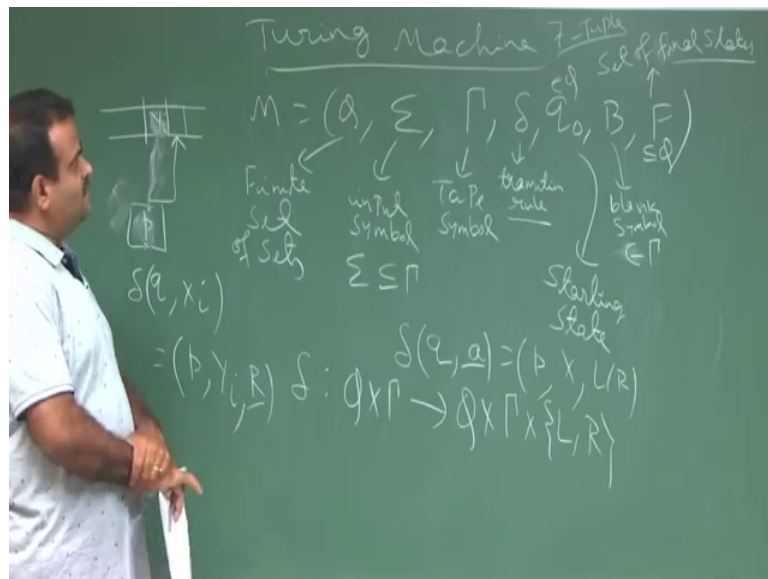 Turing Machine 7-Tuple
Set of final States
M = (Q, Σ, Γ, δ, q₀, B, F)
∈Q
⊆Q
Finite
Set
of Sets
input
Symbol
Σ ⊆ Γ
TaPe
Symbol
transition
rule
Starting
State
blank
Symbol
∈ Γ
p
δ(q, xᵢ)
= (p, Yᵢ, R)
δ(q, a) = (p, X, L/R)
δ : Q×Γ → Q×Γ×{L, R}